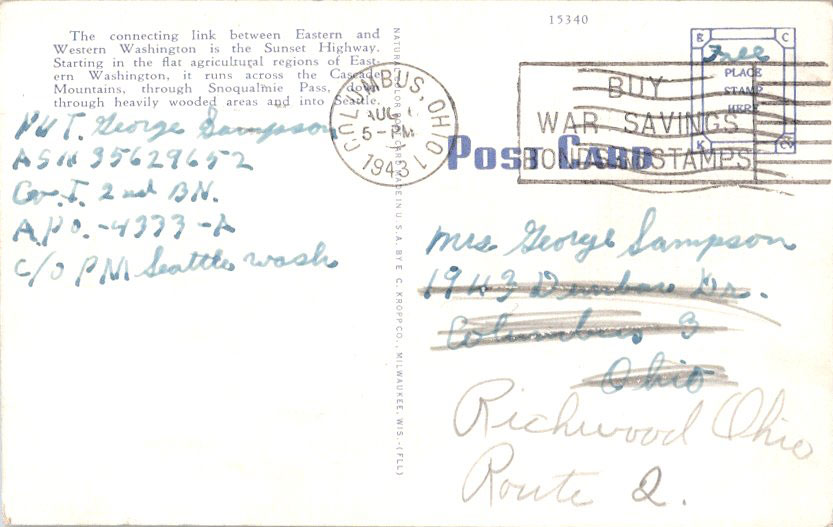 The connecting link between Eastern and
Western Washington is the Sunset Highway.
Starting in the flat agricultural regions of East-
ern Washington, it runs across the Cascade
Mountains, through Snoqualmie Pass, down
through heavily wooded areas and into Seattle.
Pvt. George Sampson
ASN 35629652
Co. I. 2nd BN.
A.P.O. -4333-A
c/o PM Seattle wash
MADE IN U.S.A. BY E. C. KROPP CO., MILWAUKEE, WIS.-(FLL)
15340
COLUMBUS, OHIO 1
AUG
5-PM
1943
BUY
WAR SAVINGS
BONDS AND STAMPS
E C
K Co
Free
PLACE
STAMP
HERE
POST CARD
Mrs George Sampson
1943 Dunbar Dr.
Columbus 3
Ohio
Richwood Ohio
Route 2.